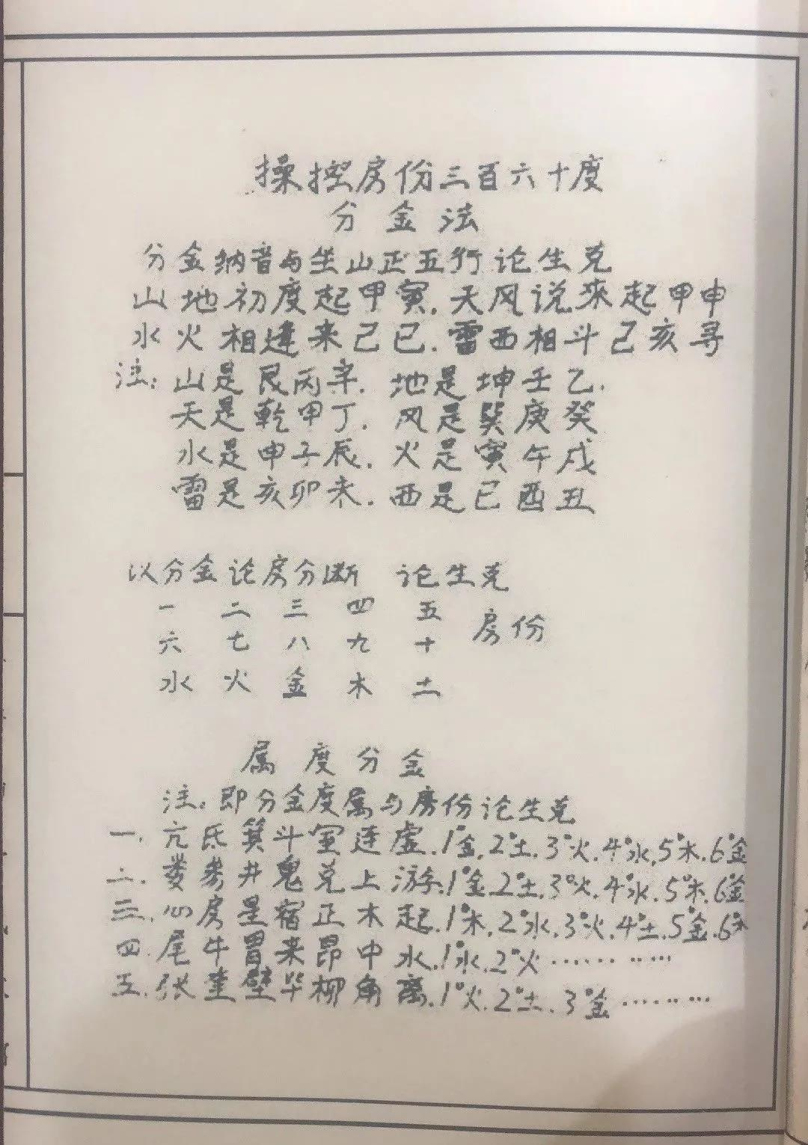 操控房份三百六十度
分金法
分金纳音与坐山正五行论生克
山地初度起甲寅.天风说来起甲申
水火相逢来己巳.雷西相斗己亥寻
注:山是艮丙辛.地是坤壬乙.
天是乾甲丁.风是巽庚癸
水是申子辰.火是寅午戌
雷是亥卯未.西是巳酉丑
以分金论房分断 论生克
一 二 三 四 五
房份
六 七 八 九 十
水 火 金 木 土
属度分金
注:即分金度属与房份论生克
一.亢氐箕斗室连虚.1°金.2°土.3°火.4°水.5°木.6°金
二.娄井鬼兑上游.1°金.2°土.3°火.4°水.5°木.6°金
三.心房星宿正木起.1°木.2°水.3°火.4°土.5°金.6°
四.尾牛胃来昴中水.1°水.2°火…………
五.张奎壁毕柳角离.1°火.2°土.3°金………